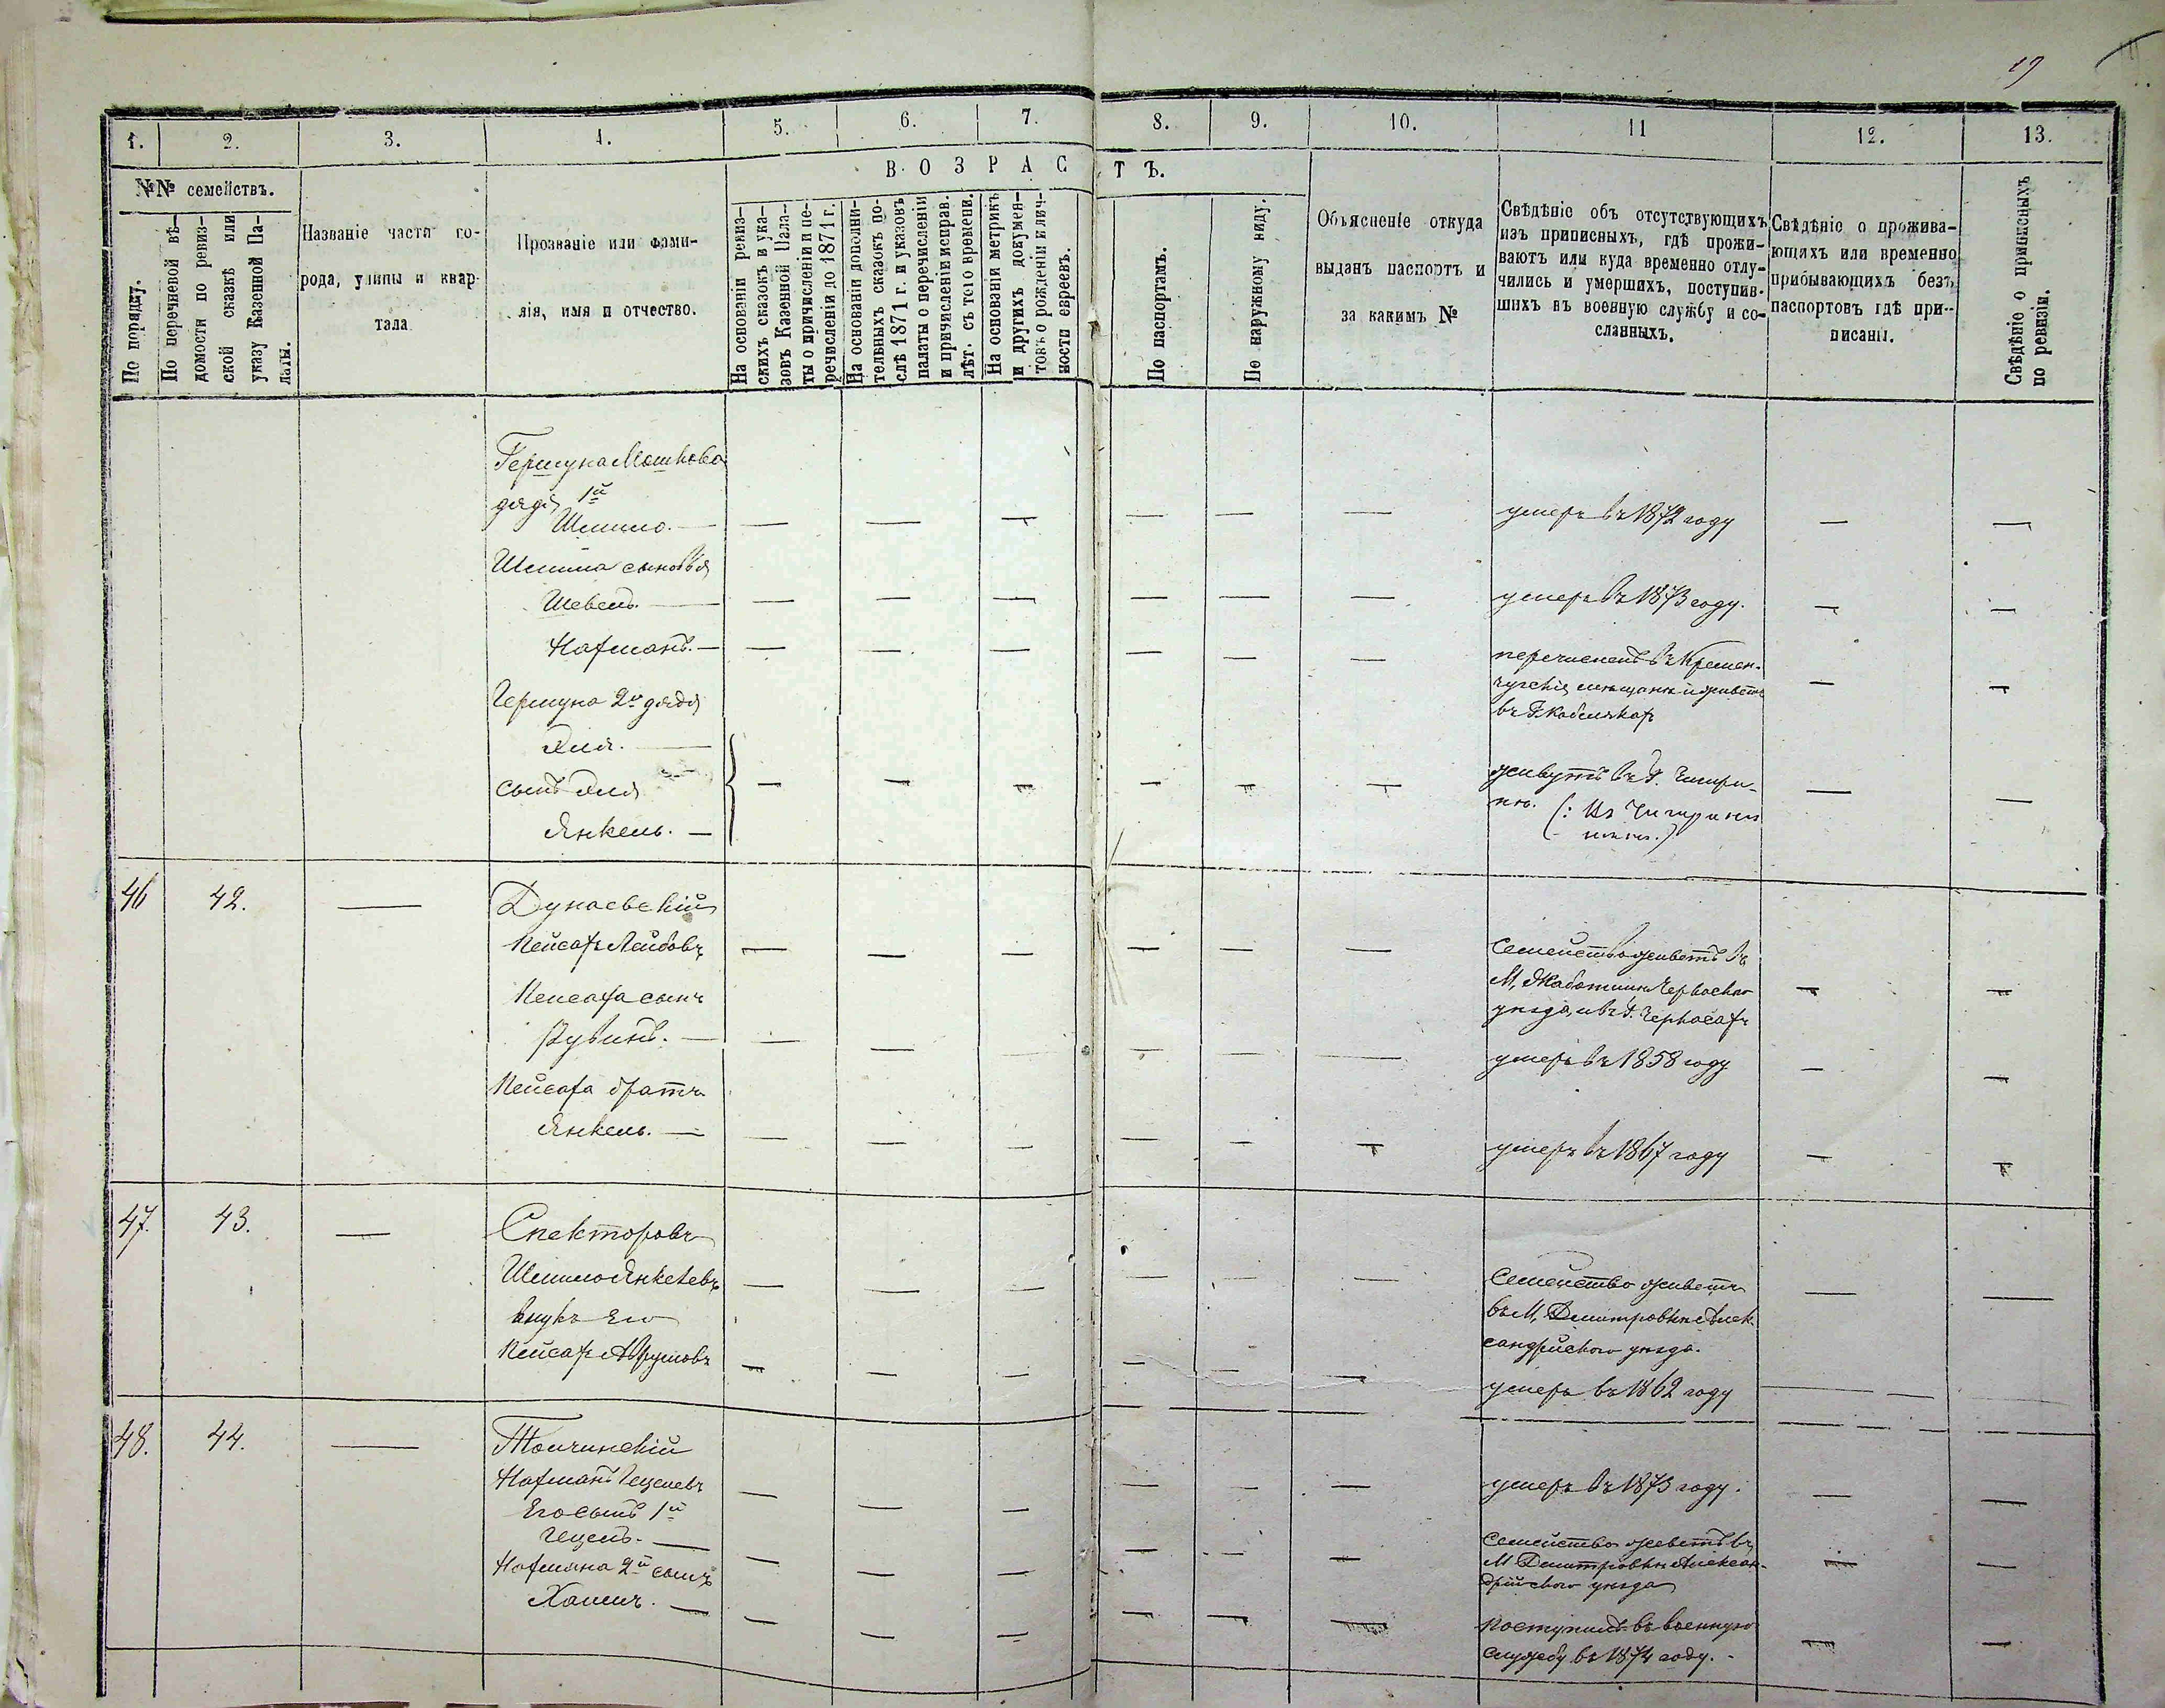 19
1. 2. 3. 4. 5. 6. 7. 8. 9. 10. 11 12. 13.
№№ семействъ.
По порядку.
По перечневой вѣ-
домости по ревиз-
ской сказкѣ или
указу Казенной Па-
латы.
Названіе части го-
рода, улицы и квар-
тала
Прозваніе или фами-
лія, имя и отчество.
ВОЗРАСТЪ.
На основаніи ревиз-
скихъ сказокъ и ука-
зовъ Казенной Пала-
ты о причисленіи и пе-
речисленіи до 1871 г.
На основаніи дополни-
тельныхъ сказокъ по-
слѣ 1871 г. и указовъ
палаты о перечисленіи
и причисленіи исправ.
лѣт. съ того времени.
На основаніи метрикъ
и другихъ докумен-
товъ о рожденіи и лич-
ности евреевъ.
По паспортамъ.
По наружному виду.
Объясненіе откуда
выданъ паспортъ и
за какимъ №
Свѣдѣніе объ отсутствующихъ
изъ приписныхъ, гдѣ прожи-
ваютъ или куда временно отлу-
чились и умершихъ, поступив-
шихъ въ военную службу и со-
сланныхъ.
Свѣдѣніе о прожива-
ющихъ или временно
прибывающихъ безъ
паспортовъ гдѣ при-
писаны.
Свѣдѣніе о приписныхъ
по ревизіи.
Гершуна Мошкова
дядя 1й
Шлиомо. — умеръ въ 1872 году
Шлиома сыновья
Шевель. — умеръ въ 1873 году.
Нахманъ. — перечисленъ въ Кремен-
чугскія мѣщане и живетъ
въ г. Кобелякахъ
Гершуна 2й дядя
Эля. —
сынъ Эля
Янкель. —
живутъ въ г. Чигири-
нѣ. (: Из Чигирини
46 42. — Дунаевскій
Пейсахъ Лейбовъ — Семейство живетъ въ
М. Жаботинѣ Черкаскаго
уѣзда, и въ г. Черкасахъ
Пейсаха сынъ
Рувинъ. — умеръ въ 1858 году
Пейсаха братъ
Янкель. — умеръ въ 1867 году
47. 43. — Спекторовъ
Шлиомо Янкелевъ — Семейство живетъ
въ М. Дмитровкѣ Алек
сандрійскаго уѣзда.
внукъ Его
Пейсахъ Аврумовъ — умеръ въ 1862 году
48. 44. — Томчинскій
Нахманъ Гецелевъ — умеръ въ 1873 году.
Его сынъ 1й
Гецель. — Семейство живетъ въ
М Дмитровкѣ Алексан-
дрійскаго уѣзда
Нахмана 2й сынъ
Хаимъ. — Поступилъ въ военную
службу въ 1874 году.